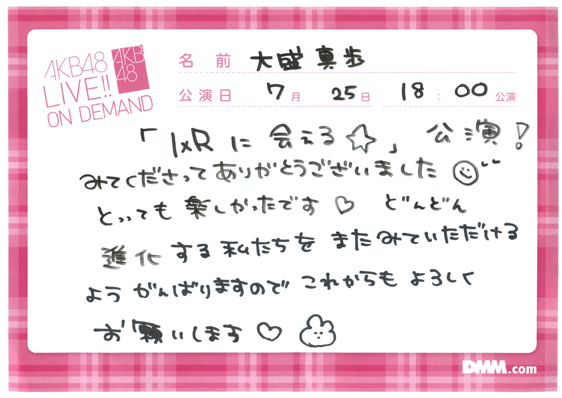 AKB48
LIVE!!
ON DEMAND
AKB
48
名前 大盛真歩
公演日 7月 25日 18:00公演
「IxRに会える☆」公演!
みてくださってありがとうございました
とっても楽しかったです♡ どんどん
進化する私たちをまたみていただける
ようがんばりますのでこれからもよろしく
お願いします♡
DMM.com